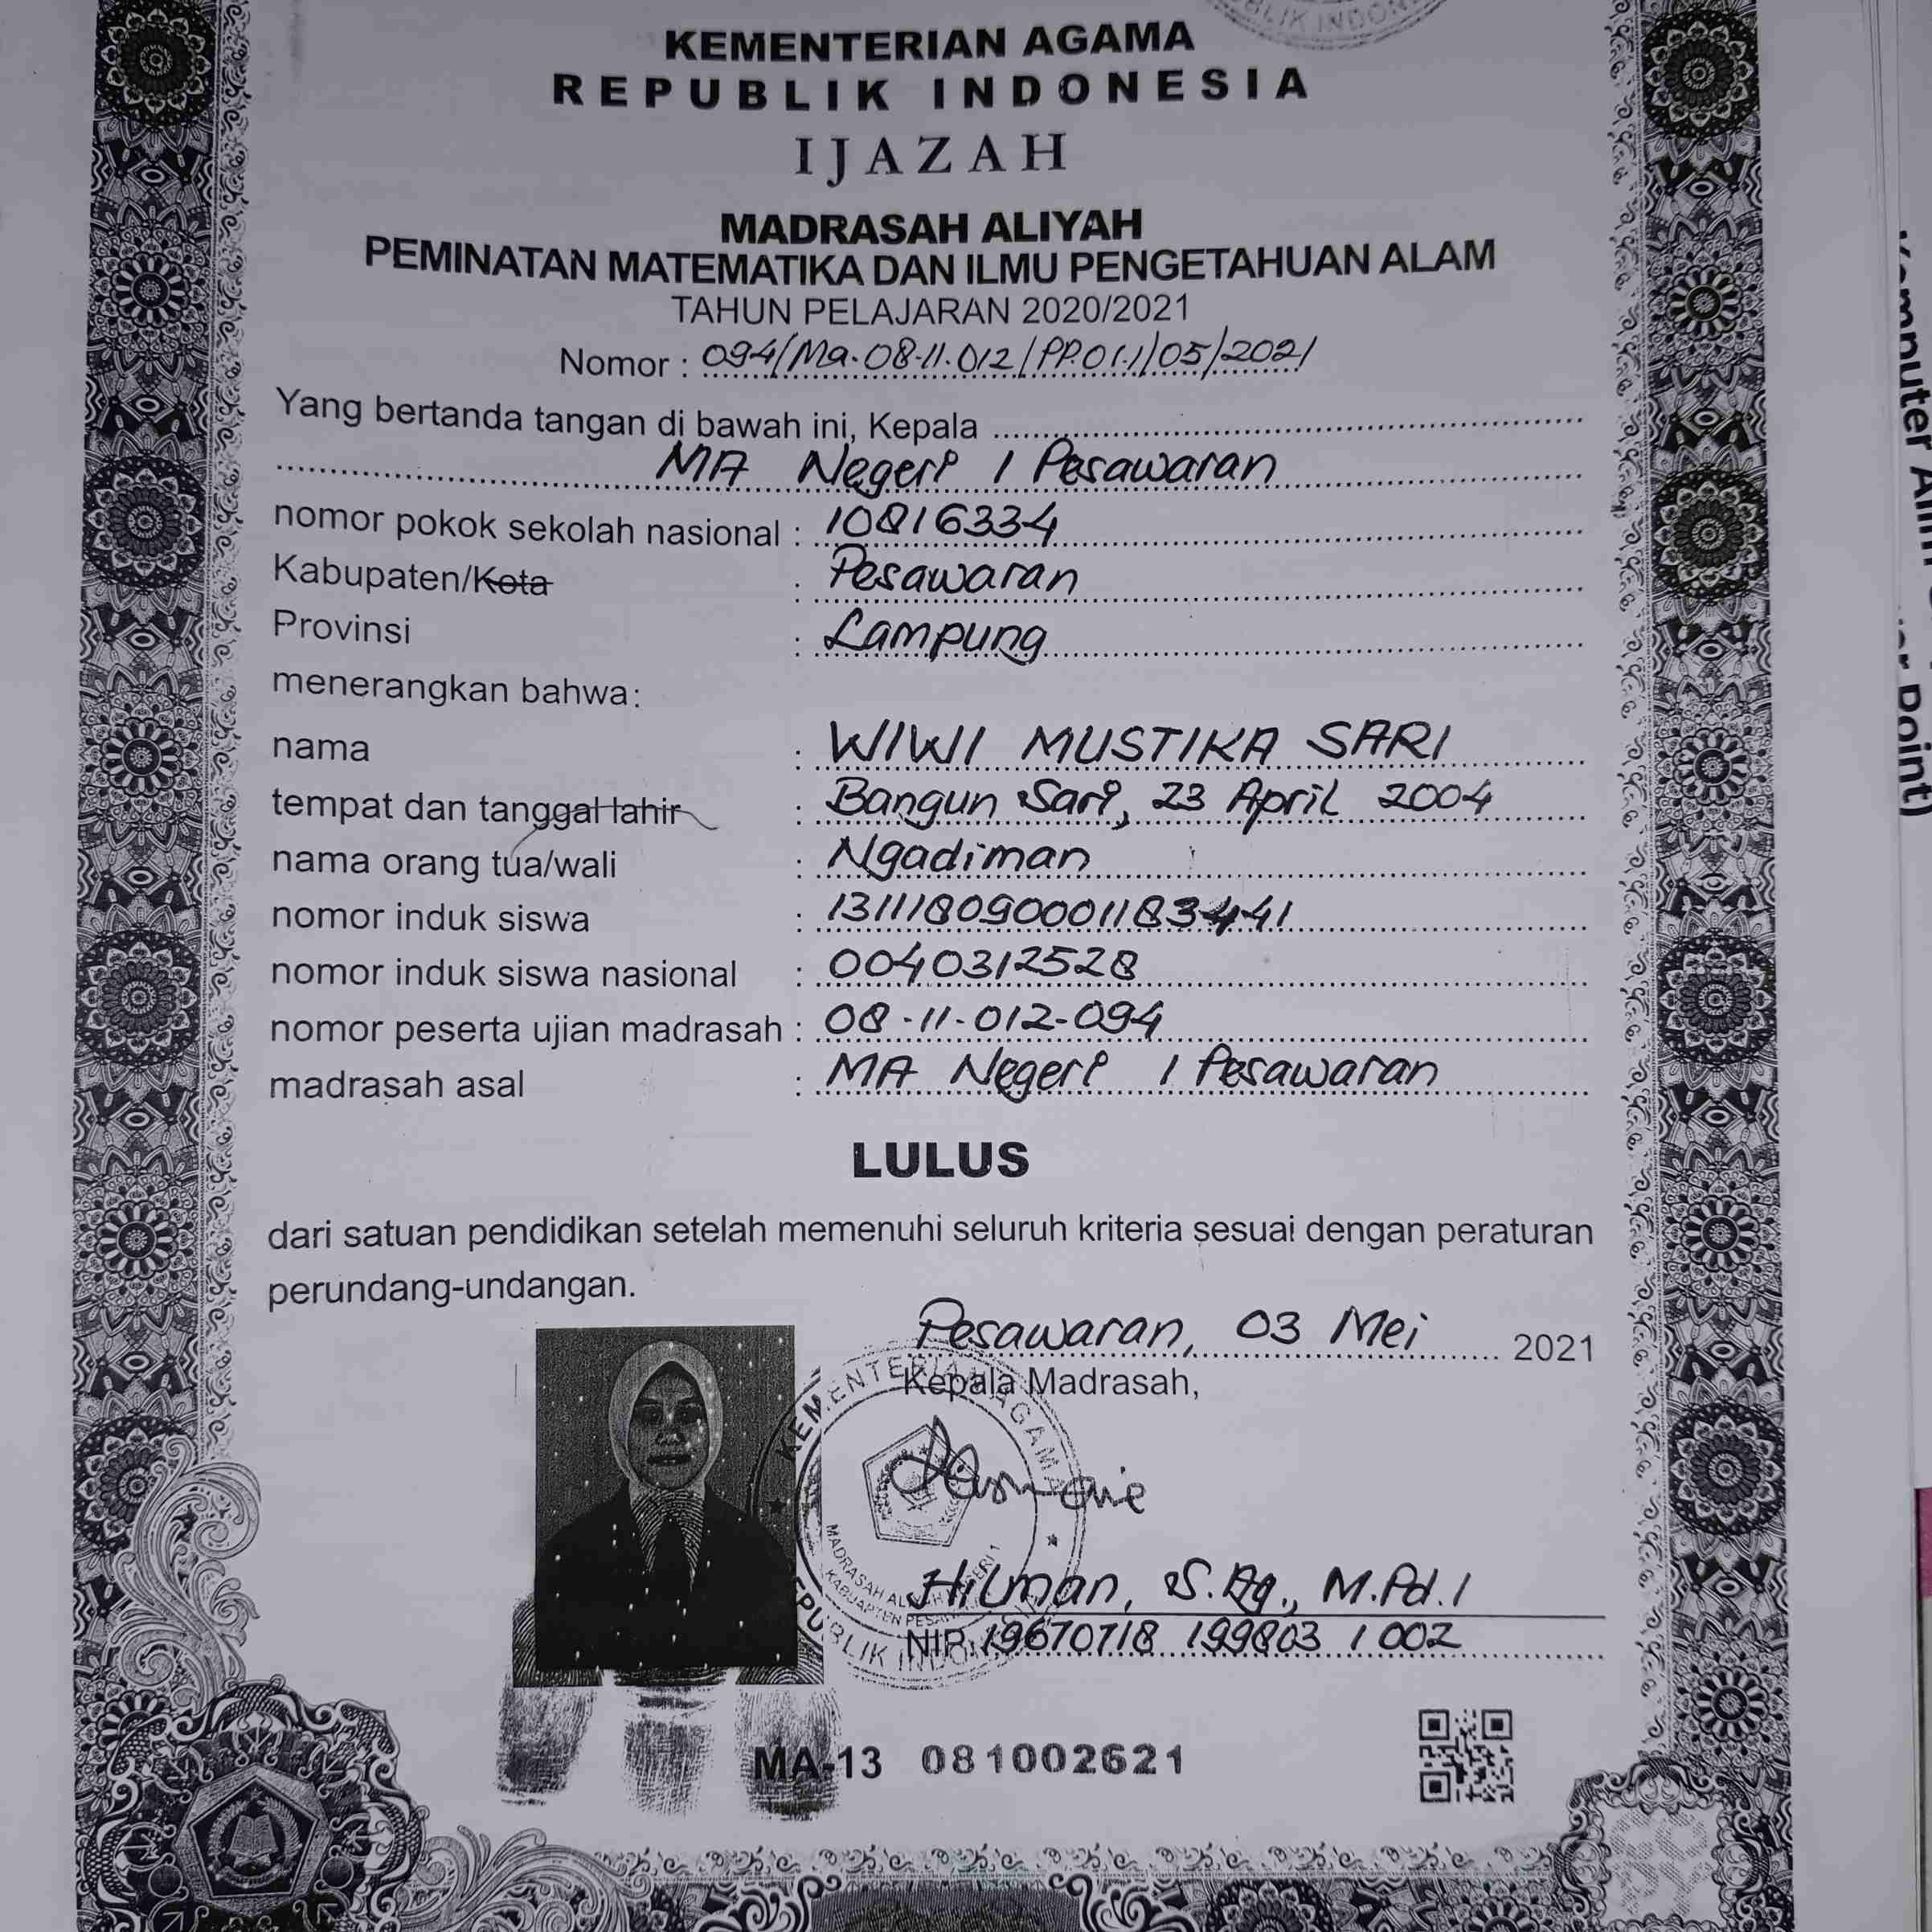 BLIK INDON
KEMENTERIAN AGAMA
REPUBLIK INDONESIA
IJAZAH
MADRASAH ALIYAH
PEMINATAN MATEMATIKA DAN ILMU PENGETAHUAN ALAM
TAHUN PELAJARAN 2020/2021
Nomor : 094/Ma.08.11.012/PP.01.1/05/2021
Yang bertanda tangan di bawah ini, Kepala
MA Negeri 1 Pesawaran
nomor pokok sekolah nasional : 10816334
Kabupaten/Kota : Pesawaran
Provinsi : Lampung
menerangkan bahwa:
nama : WIWI MUSTIKA SARI
tempat dan tanggal lahir : Bangun Sari, 23 April 2004
nama orang tua/wali : Ngadiman
nomor induk siswa : 131118090001183441
nomor induk siswa nasional : 0040312528
nomor peserta ujian madrasah : 08-11-012-094
madrasah asal : MA Negeri 1 Pesawaran
LULUS
dari satuan pendidikan setelah memenuhi seluruh kriteria sesuai dengan peraturan
perundang-undangan.
Pesawaran, 03 Mei 2021
Kepala Madrasah,
KEMENTERIAN AGAMA
REPUBLIK INDONESIA
MADRASAH ALIYAH NEGERI 1
KABUPATEN PESAWARAN
Hilman, S.Ag., M.Pd.I
NIP. 19670718 199803 1 002
MA-13 081002621
Point)